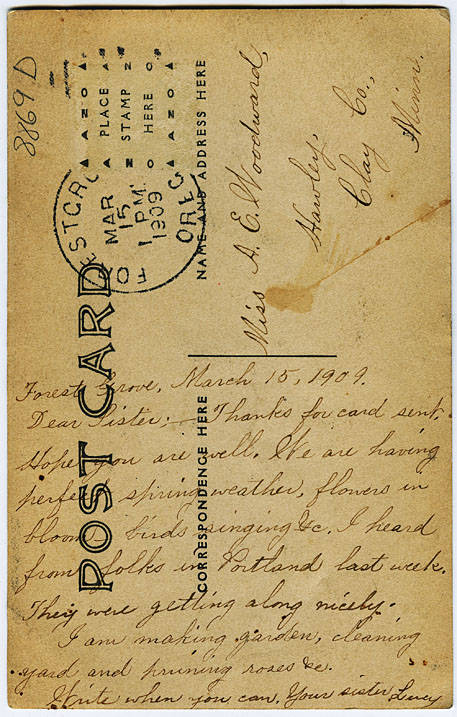 8869 D
▲ AZO ▲
PLACE
STAMP
HERE
▲ AZO ▲
FOREST GRO
MAR
15
1 PM
1909
OREG
POST CARD
NAME AND ADDRESS HERE
Miss A. E. Woodward,
Hawley,
Clay Co.,
Minn.
CORRESPONDENCE HERE
Forest Grove, March 15, 1909.
Dear Sister:— Thanks for card sent.
Hope you are well. We are having
perfect spring weather, flowers in
bloom, birds singing &c. I heard
from folks in Portland last week.
They were getting along nicely.
I am making garden, cleaning
yard and pruning roses &c.
Write when you can. Your sister Lucy